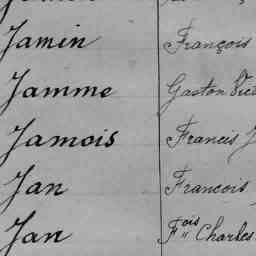 Jamin François
Jamme Gaston Vic
Jamois Francis J
Jan Francois
Jan Fois Charles